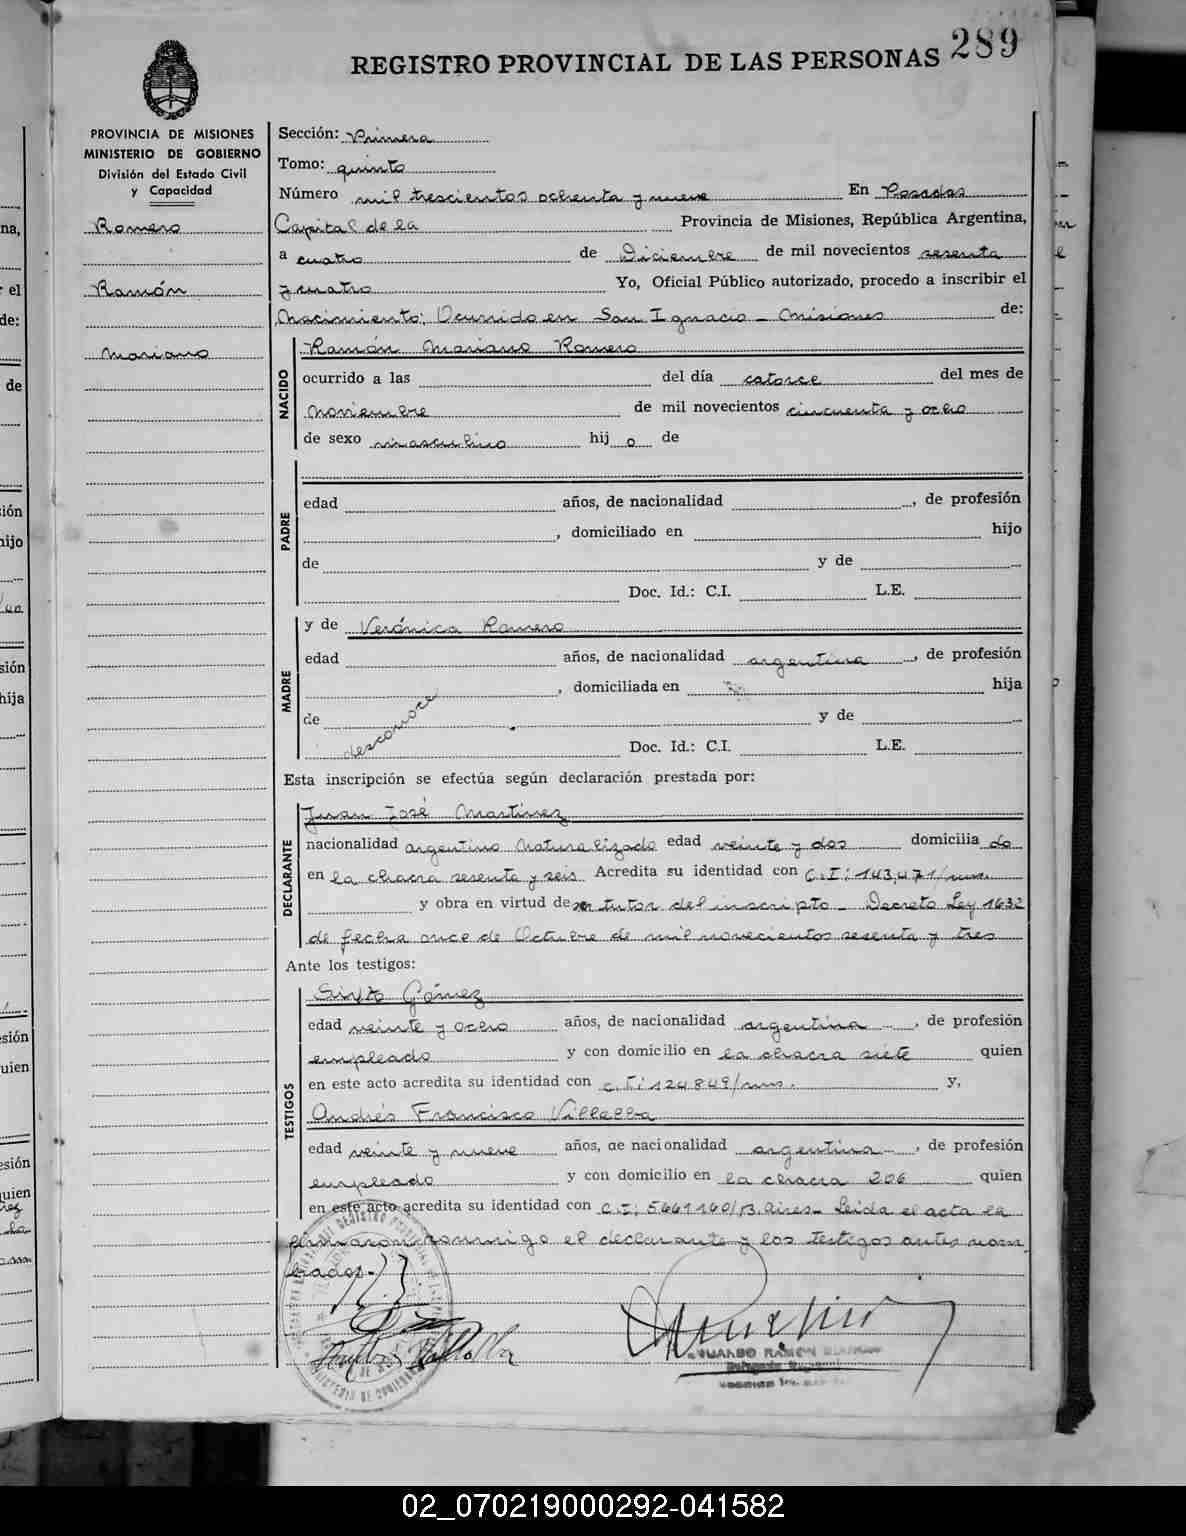 289
REGISTRO PROVINCIAL DE LAS PERSONAS
PROVINCIA DE MISIONES
MINISTERIO DE GOBIERNO
División del Estado Civil
y Capacidad
Romero
Ramón
Mariano
Sección: Primera
Tomo: quinto
Número mil trescientos ochenta y nueve En Posadas
Capital de la Provincia de Misiones, República Argentina,
a cuatro de Diciembre de mil novecientos sesenta
y cuatro Yo, Oficial Público autorizado, procedo a inscribir el
Nacimiento: Ocurrido en San Ignacio - Misiones de:
NACIDO
Ramón Mariano Romero
ocurrido a las del día catorce del mes de
Noviembre de mil novecientos cincuenta y ocho
de sexo masculino hijo de
PADRE
edad años, de nacionalidad , de profesión
, domiciliado en hijo
de y de
Doc. Id.: C.I. L.E.
MADRE
y de Verónica Romero
edad años, de nacionalidad argentina , de profesión
, domiciliada en hija
de desconoce y de
Doc. Id.: C.I. L.E.
Esta inscripción se efectúa según declaración prestada por:
DECLARANTE
Juan José Martínez
nacionalidad argentino Naturalizado edad veinte y dos domiciliado
en la chacra sesenta y seis Acredita su identidad con C.I: 143,471/mns.
y obra en virtud de ser tutor del inscripto - Decreto Ley 1632
de fecha once de Octubre de mil novecientos sesenta y tres
Ante los testigos:
TESTIGOS
Sixto Gómez
edad veinte y ocho años, de nacionalidad argentina , de profesión
empleado y con domicilio en la chacra siete quien
en este acto acredita su identidad con C.I: 124849/mns. y,
Andrés Francisco Villalba
edad veinte y nueve años, de nacionalidad argentina , de profesión
empleado y con domicilio en la chacra 206 quien
en este acto acredita su identidad con C.I; 5661160/B.Aires- Leída el acta la
firmaron conmigo el declarante y los testigos antes nom
brados.-
02_070219000292-041582